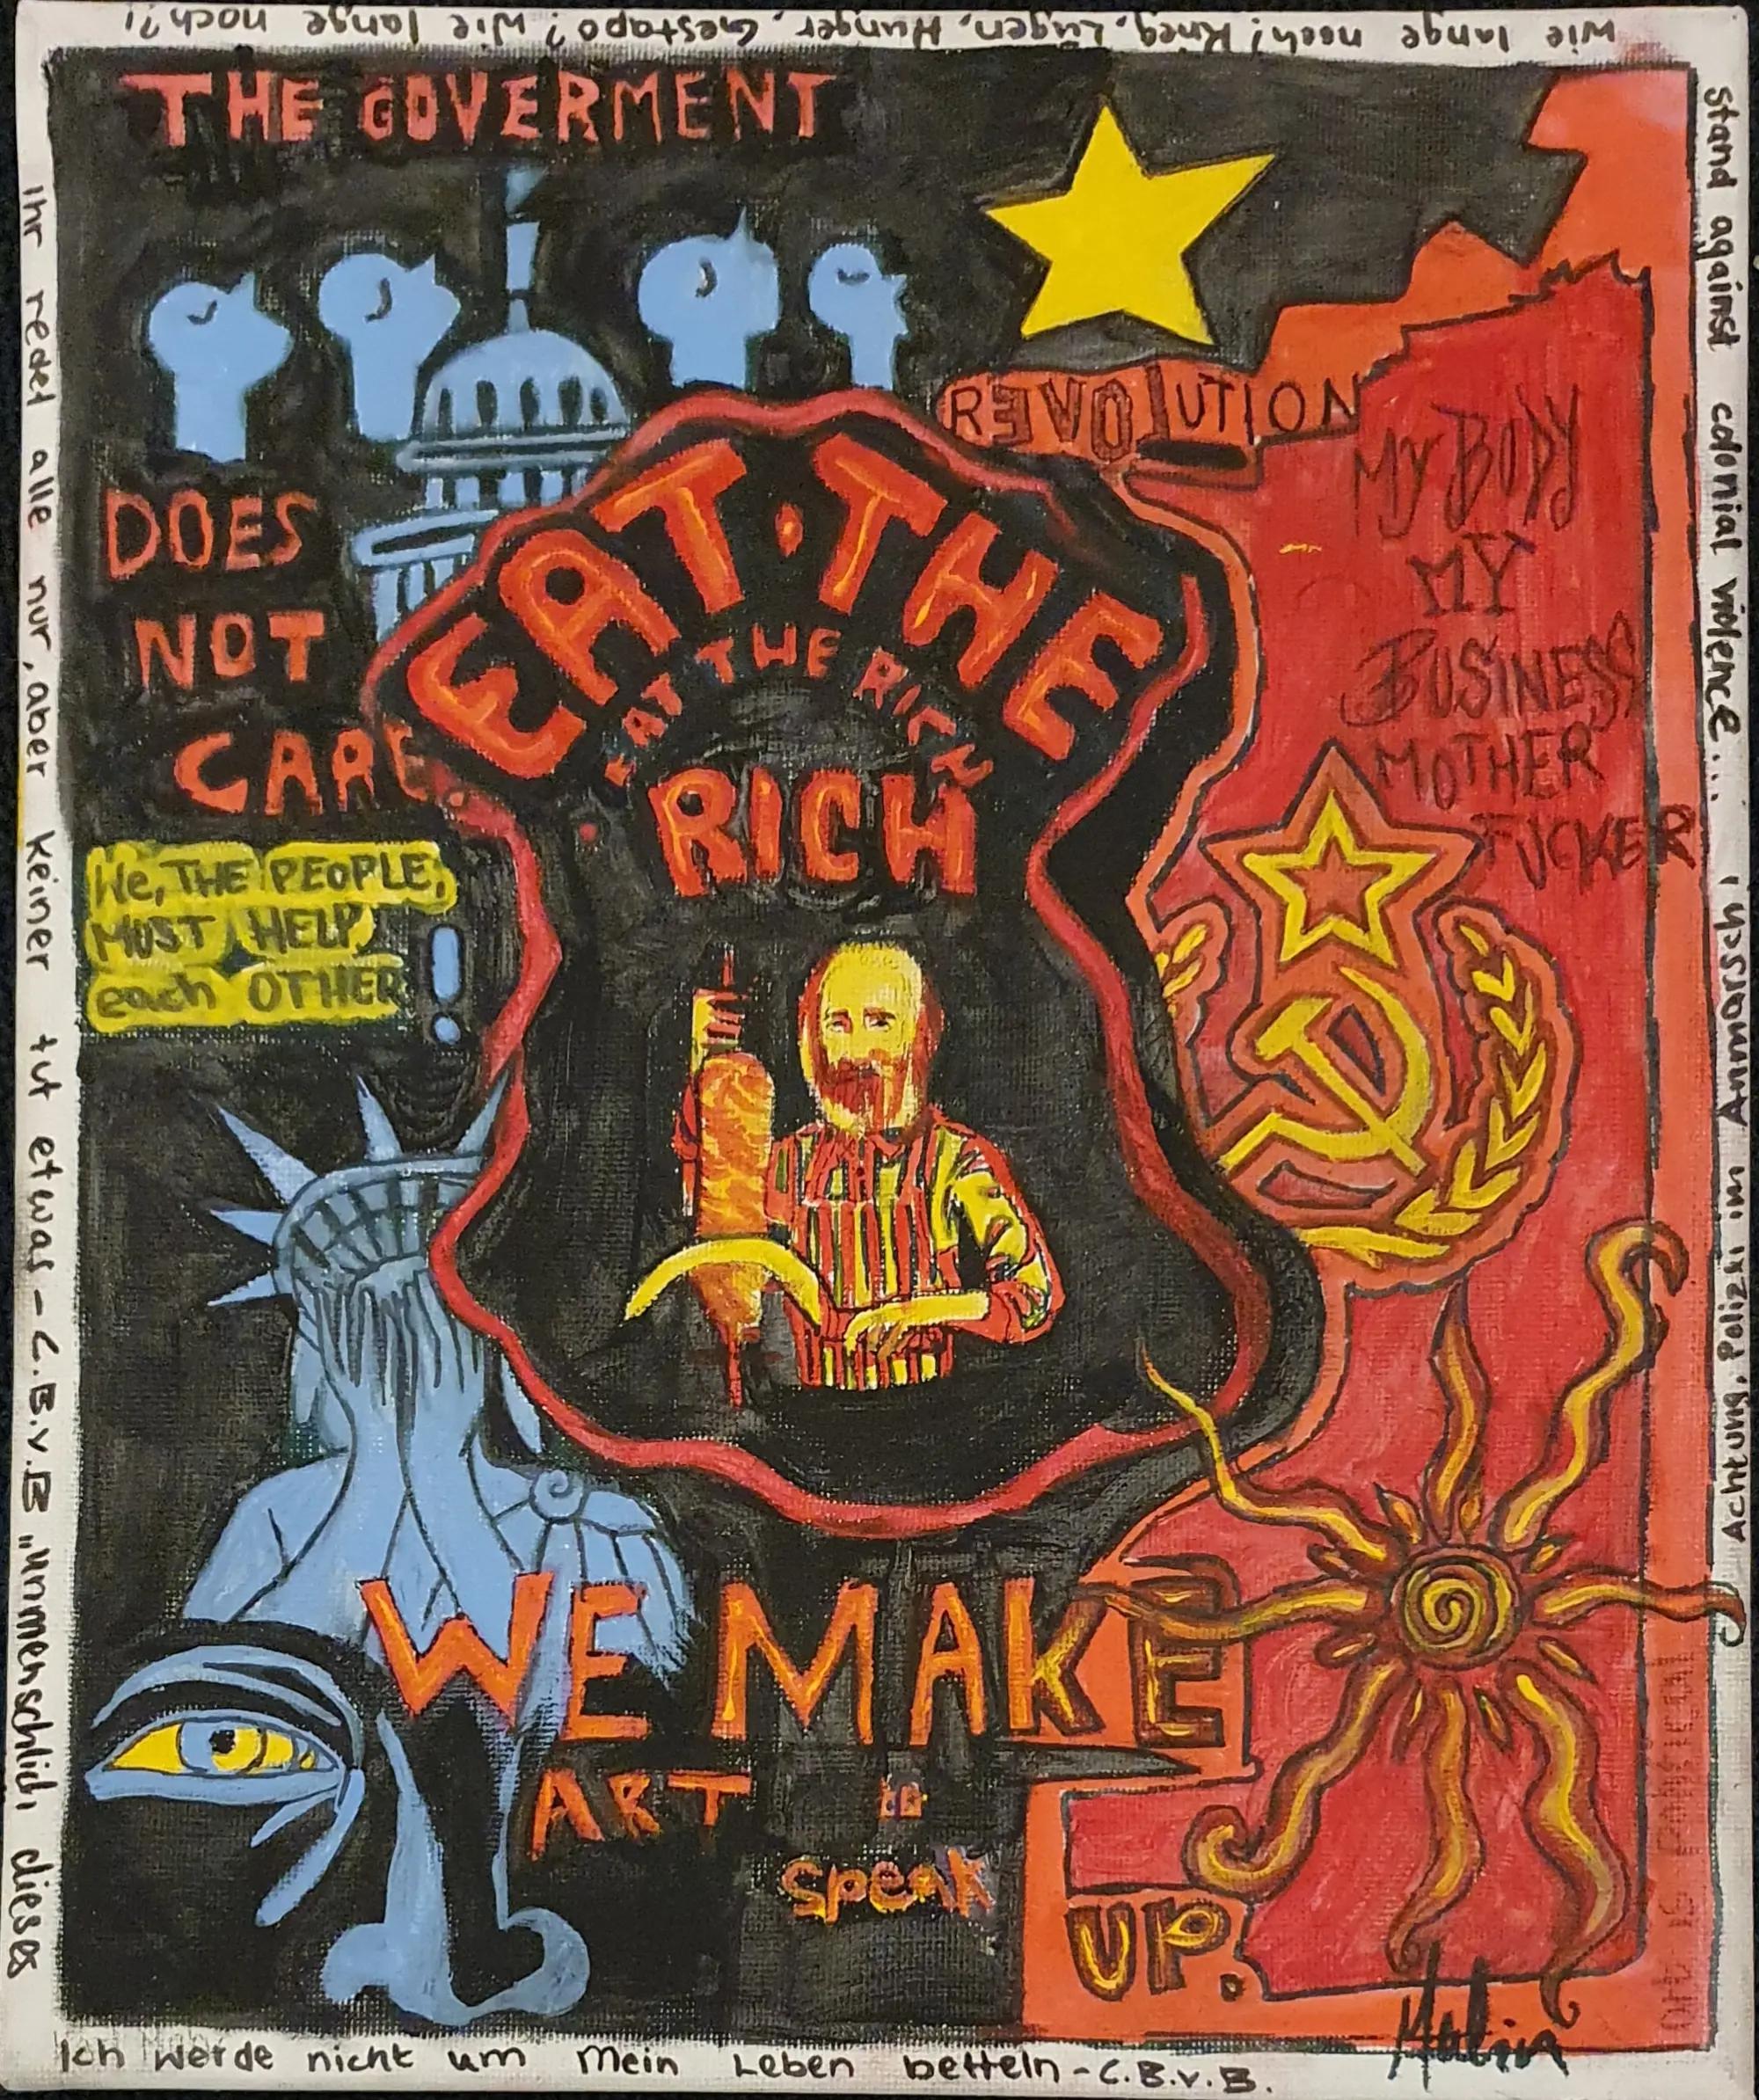 Wie lange noch? Krieg, Lügen, Hunger, Gestapo? Wie lange noch?!
THE GOVERMENT
DOES
NOT
CARE.
We, THE PEOPLE,
MUST HELP
each OTHER!
REVOLUTION
EAT·THE
EAT THE RICH
RICH
MY BODY
MY
BUSINESS
MOTHER
FUCKER
WE MAKE
ART to
speak
UP.
Stand against colonial violence... Achtung, Polizei im Anmarsch!
Ihr redet alle nur, aber keiner tut etwas - C.B.v.B „unmenschlich, dieses
Ich werde nicht um mein Leben betteln - C.B.v.B.